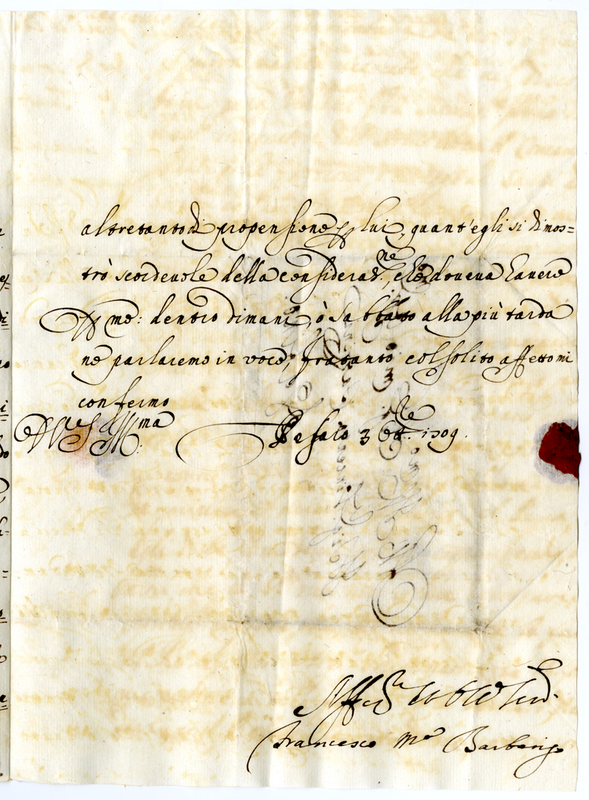 altretanto di propensione p lui, quant'egli si dimos=
trò scordeuole della considerat.ne, che doueua hauere
p me: dentro dimani ò Sabbato alla più tarda
ne parlaremo in voce, fratanto col solito affetto mi
confermo
D V S Ill.ma
Pesaro 3 Ott.re 1709.
Aff.mo
Francesco M.a Barbarigo